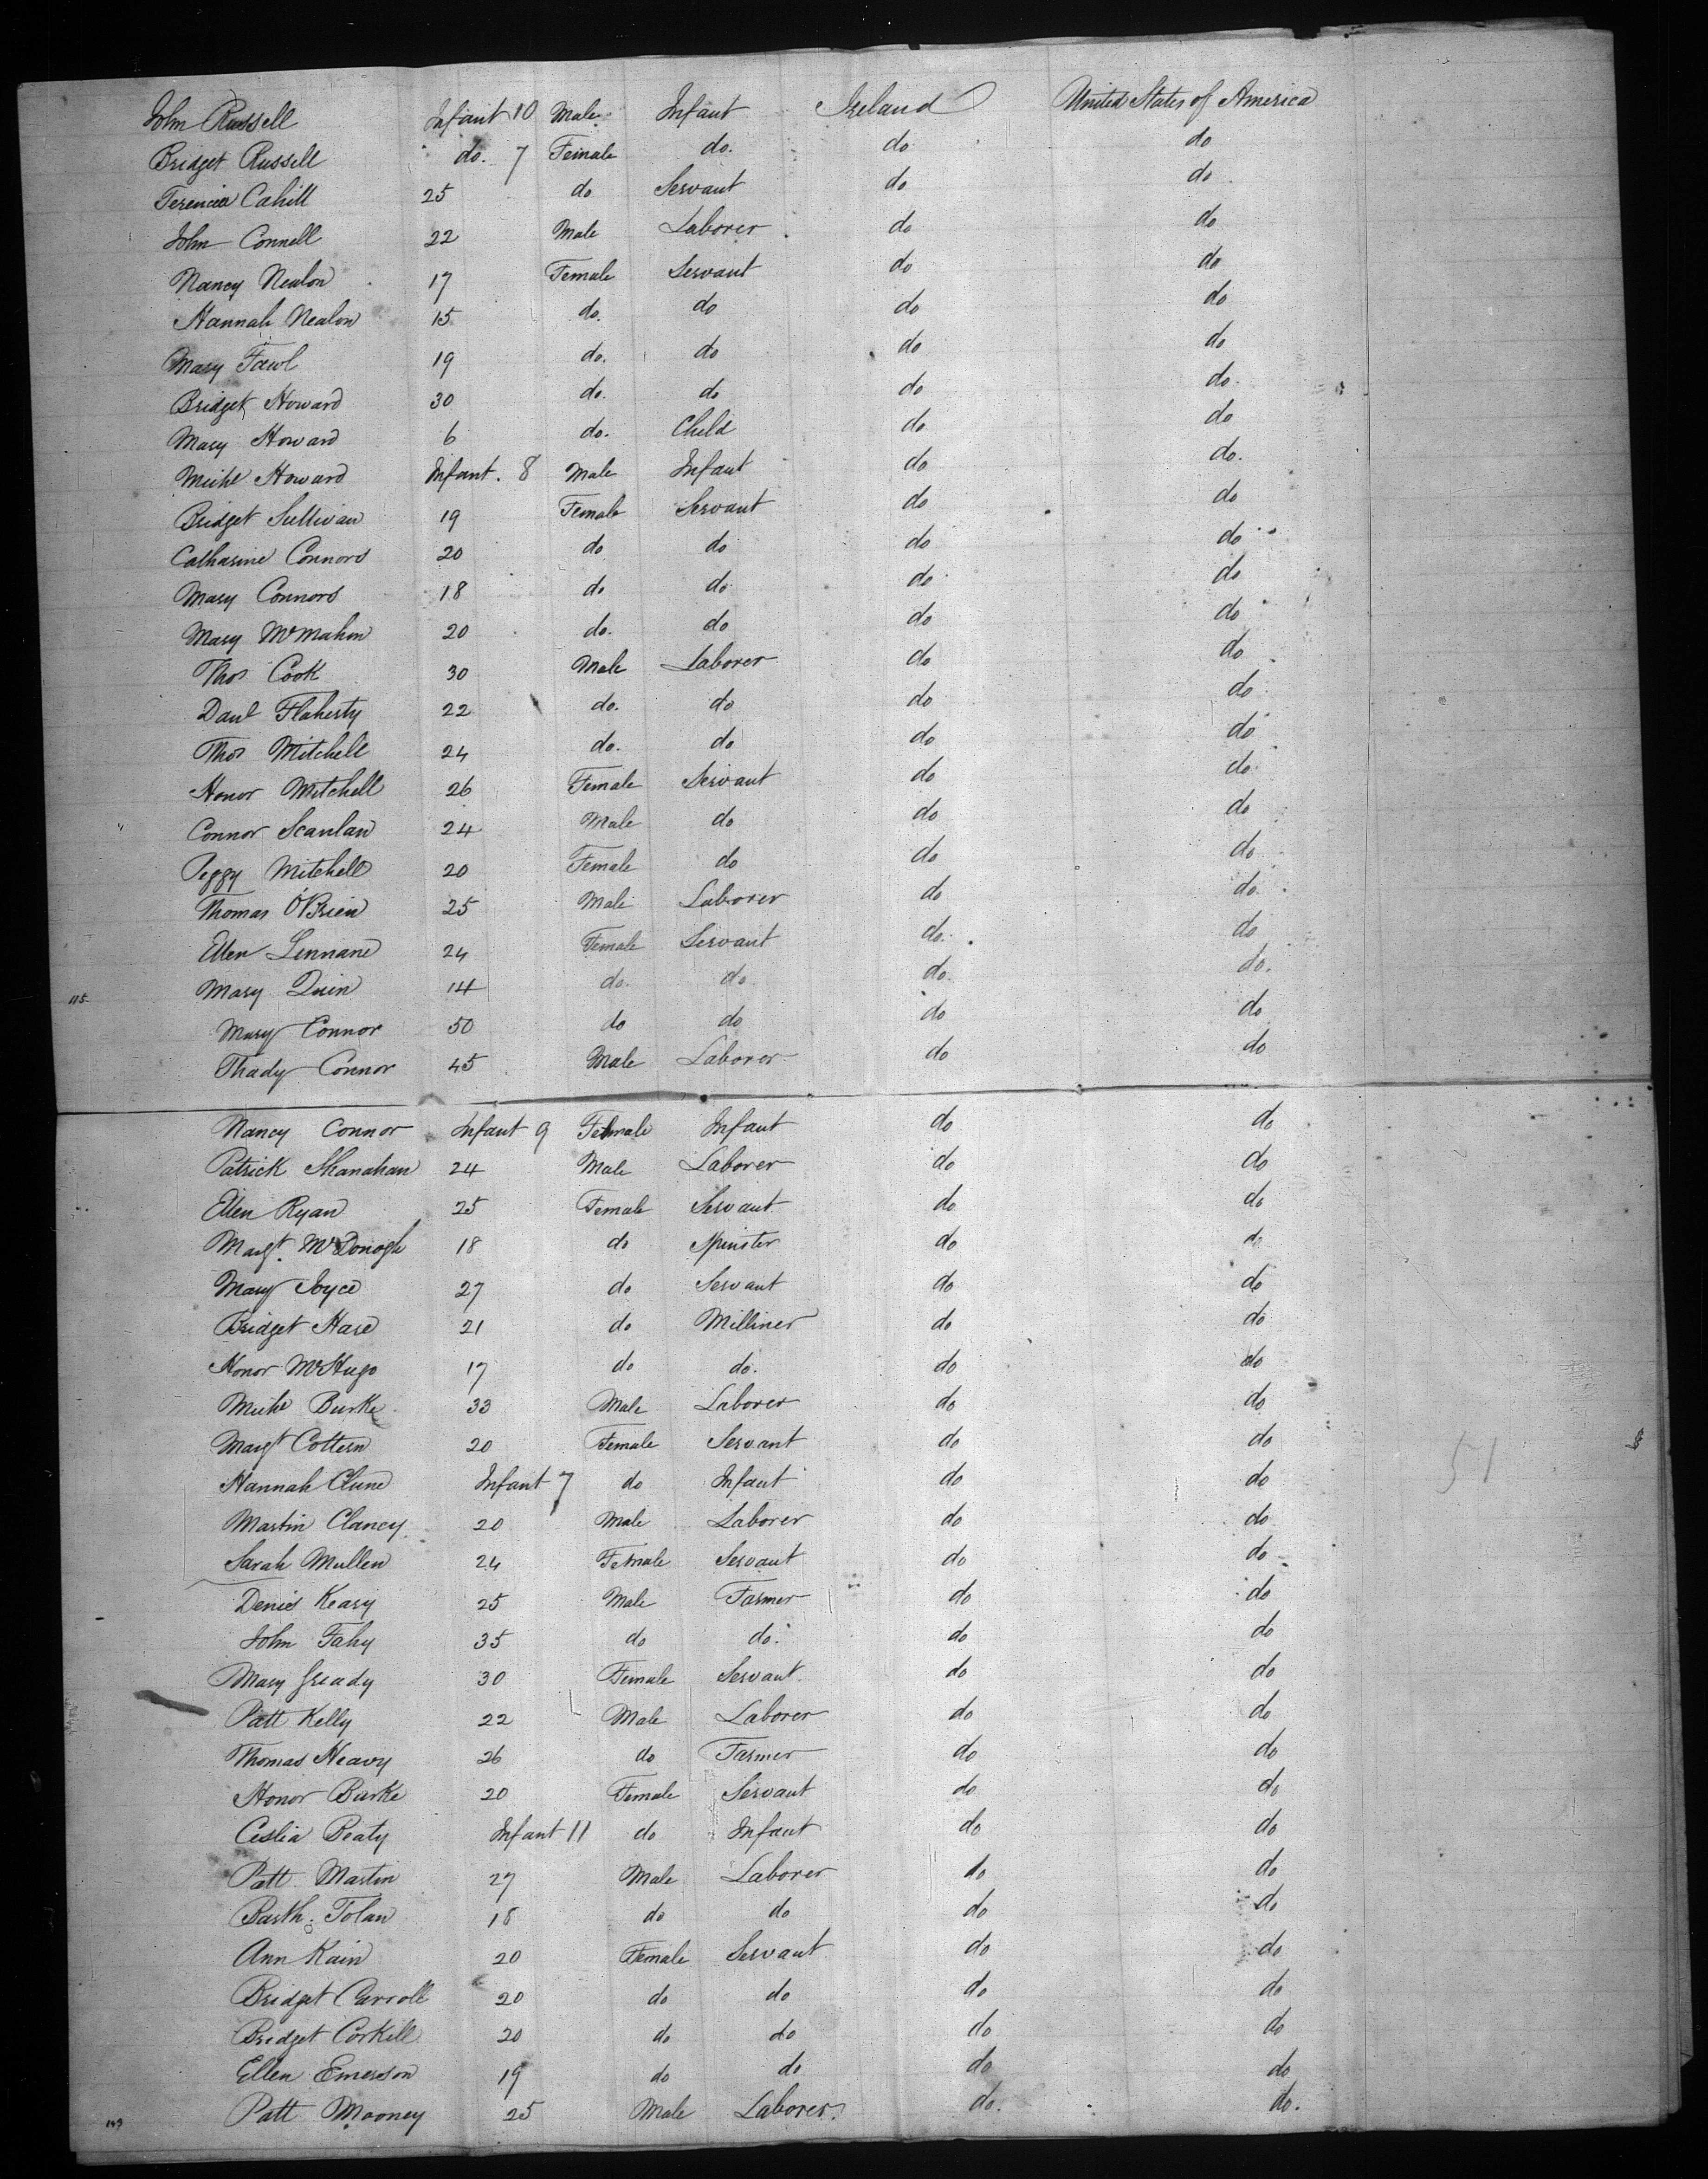 John Russell Infant 10 Male Infant Ireland United States of America
Bridget Russell do. 7 Female do. do do
Terencia Cahill 25 do Servant do do
John Connell 22 Male Laborer do do
Nancy Nealon 17 Female Servant do do
Hannah Nealon 15 do. do do do
Mary Fawl 19 do. do do do
Bridget Howard 30 do. do do do.
Mary Howard 6 do. Child do do
Michl Howard Infant. 8 Male Infant do do.
Bridget Sullivan 19 Female Servant do do
Catharine Connors 20 do do do do
Mary Connors 18 do do do do
Mary McMahon 20 do. do do do
Thos Cook 30 Male Laborer do do
Danl Flaherty 22 do. do do do
Thos Mitchell 24 do. do do do
Honor Mitchell 26 Female Servant do do
Connor Scanlan 24 Male do do do
Peggy Mitchell 20 Female do do do
Thomas O'Brien 25 Male Laborer do do
Ellen Linnane 24 Female Servant do. do
115 Mary Quin 14 do. do do. do.
Mary Connor 50 do do do do
Thady Connor 45 Male Laborer do do
Nancy Connor Infant 9 Female Infant do do
Patrick Shanahan 24 Male Laborer do do
Ellen Ryan 25 Female Servant do do
Margt. McDonogh 18 do Spinster do do
Mary Joyce 27 do Servant do do
Bridget Hare 21 do Milliner do do
Honor McHugo 17 do do. do do
Michl Burke 33 Male Laborer do do
Margt Cottern 20 Female Servant do do
51
Hannah Clune Infant 7 do Infant do do
Martin Clancy 20 Male Laborer do do
Sarah Mullen 24 Female Servant do do
Denis Keary 25 Male Farmer do do
John Fahy 35 do do. do do
Mary Gready 30 Female Servant do do
Patt Kelly 22 Male Laborer do do
Thomas Heavy 26 do Farmer do do
Honor Burke 20 Female Servant do do
Ceslia Beaty Infant 11 do Infant do do
Patt Martin 27 Male Laborer do do
Barth: Tolan 18 do do do do
Ann Kain 20 Female Servant do do
Bridget Carroll 20 do do do do
Bridget Corkill 20 do do do do
Ellen Emerson 19 do do do do
149 Patt Mooney 25 Male Laborer. do. do.